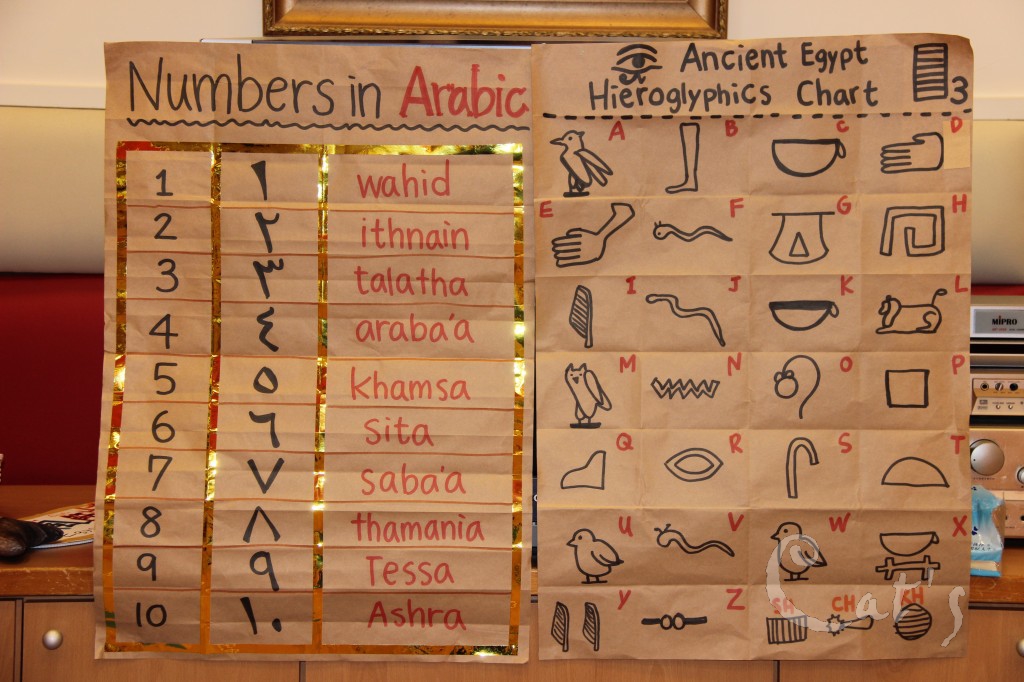 Numbers in Arabic
1 ١ wahid
2 ٢ ithnain
3 ٣ talatha
4 ٤ araba'a
5 ٥ khamsa
6 ٦ sita
7 ٧ saba'a
8 ٨ thamania
9 ٩ Tessa
10 ١٠ Ashra
Ancient Egypt
Hieroglyphics Chart
3
A B C D
E F G H
I J K L
M N O P
Q R S T
U V W X
Y Z SH CH KH
Cat's
MIPRO